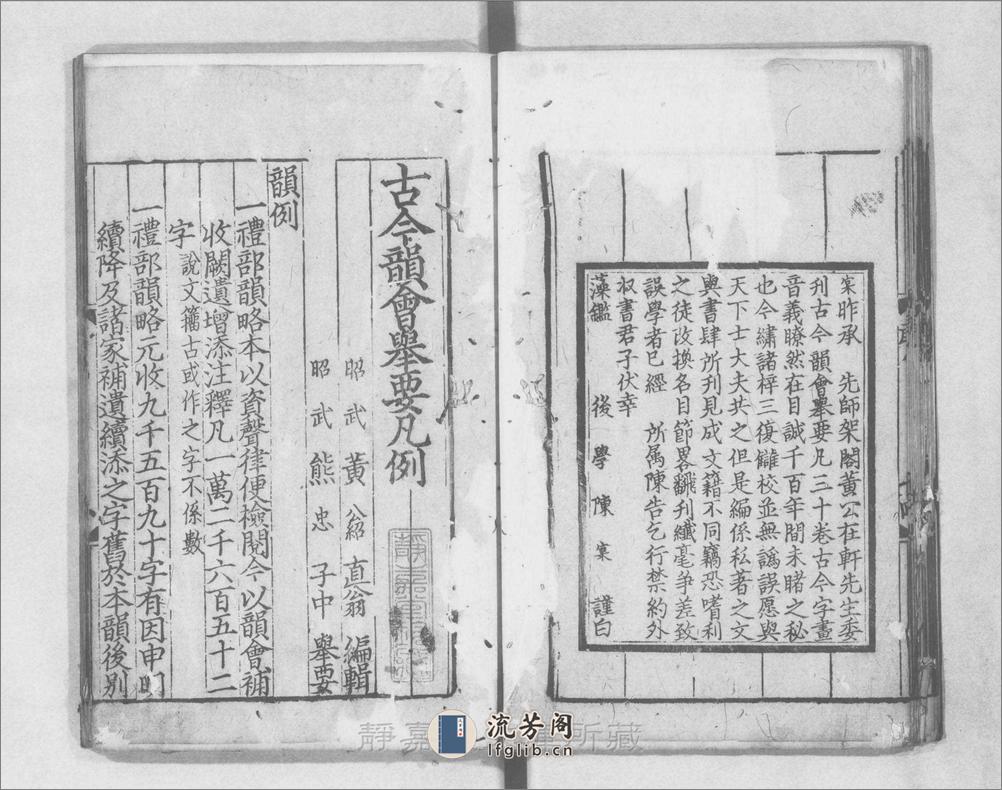 宷昨承　先師架閣黃公在軒先生委
刋古今韻會舉要凡三十卷古今字畫
音義瞭然在目誠千百年間未睹之秘
也今繡諸梓三復讎校並無譌誤愿與
天下士大夫共之但是編係私著之文
與書肆所刋見成文籍不同竊恐嗜利
之徒改換名目節畧飜刋纖毫爭差致
誤學者已經　所属陳告乞行禁約外
収書君子伏幸
藻鑑　後學陳宷謹白
古今韻會舉要凡例
昭武黃公紹直翁編輯
昭武熊忠子中舉要
韻例
一禮部韻略本以資聲律便檢閱今以韻會補
收闕遺增添注釋凡一萬二千六百五十二
字說文籒古或作之字不係數
一禮部韻略元收九千五百九十字有因申明
續降及諸家補遺續添之字舊於本韻後别
靜嘉堂文庫所藏
流芳阁
lfglib.cn